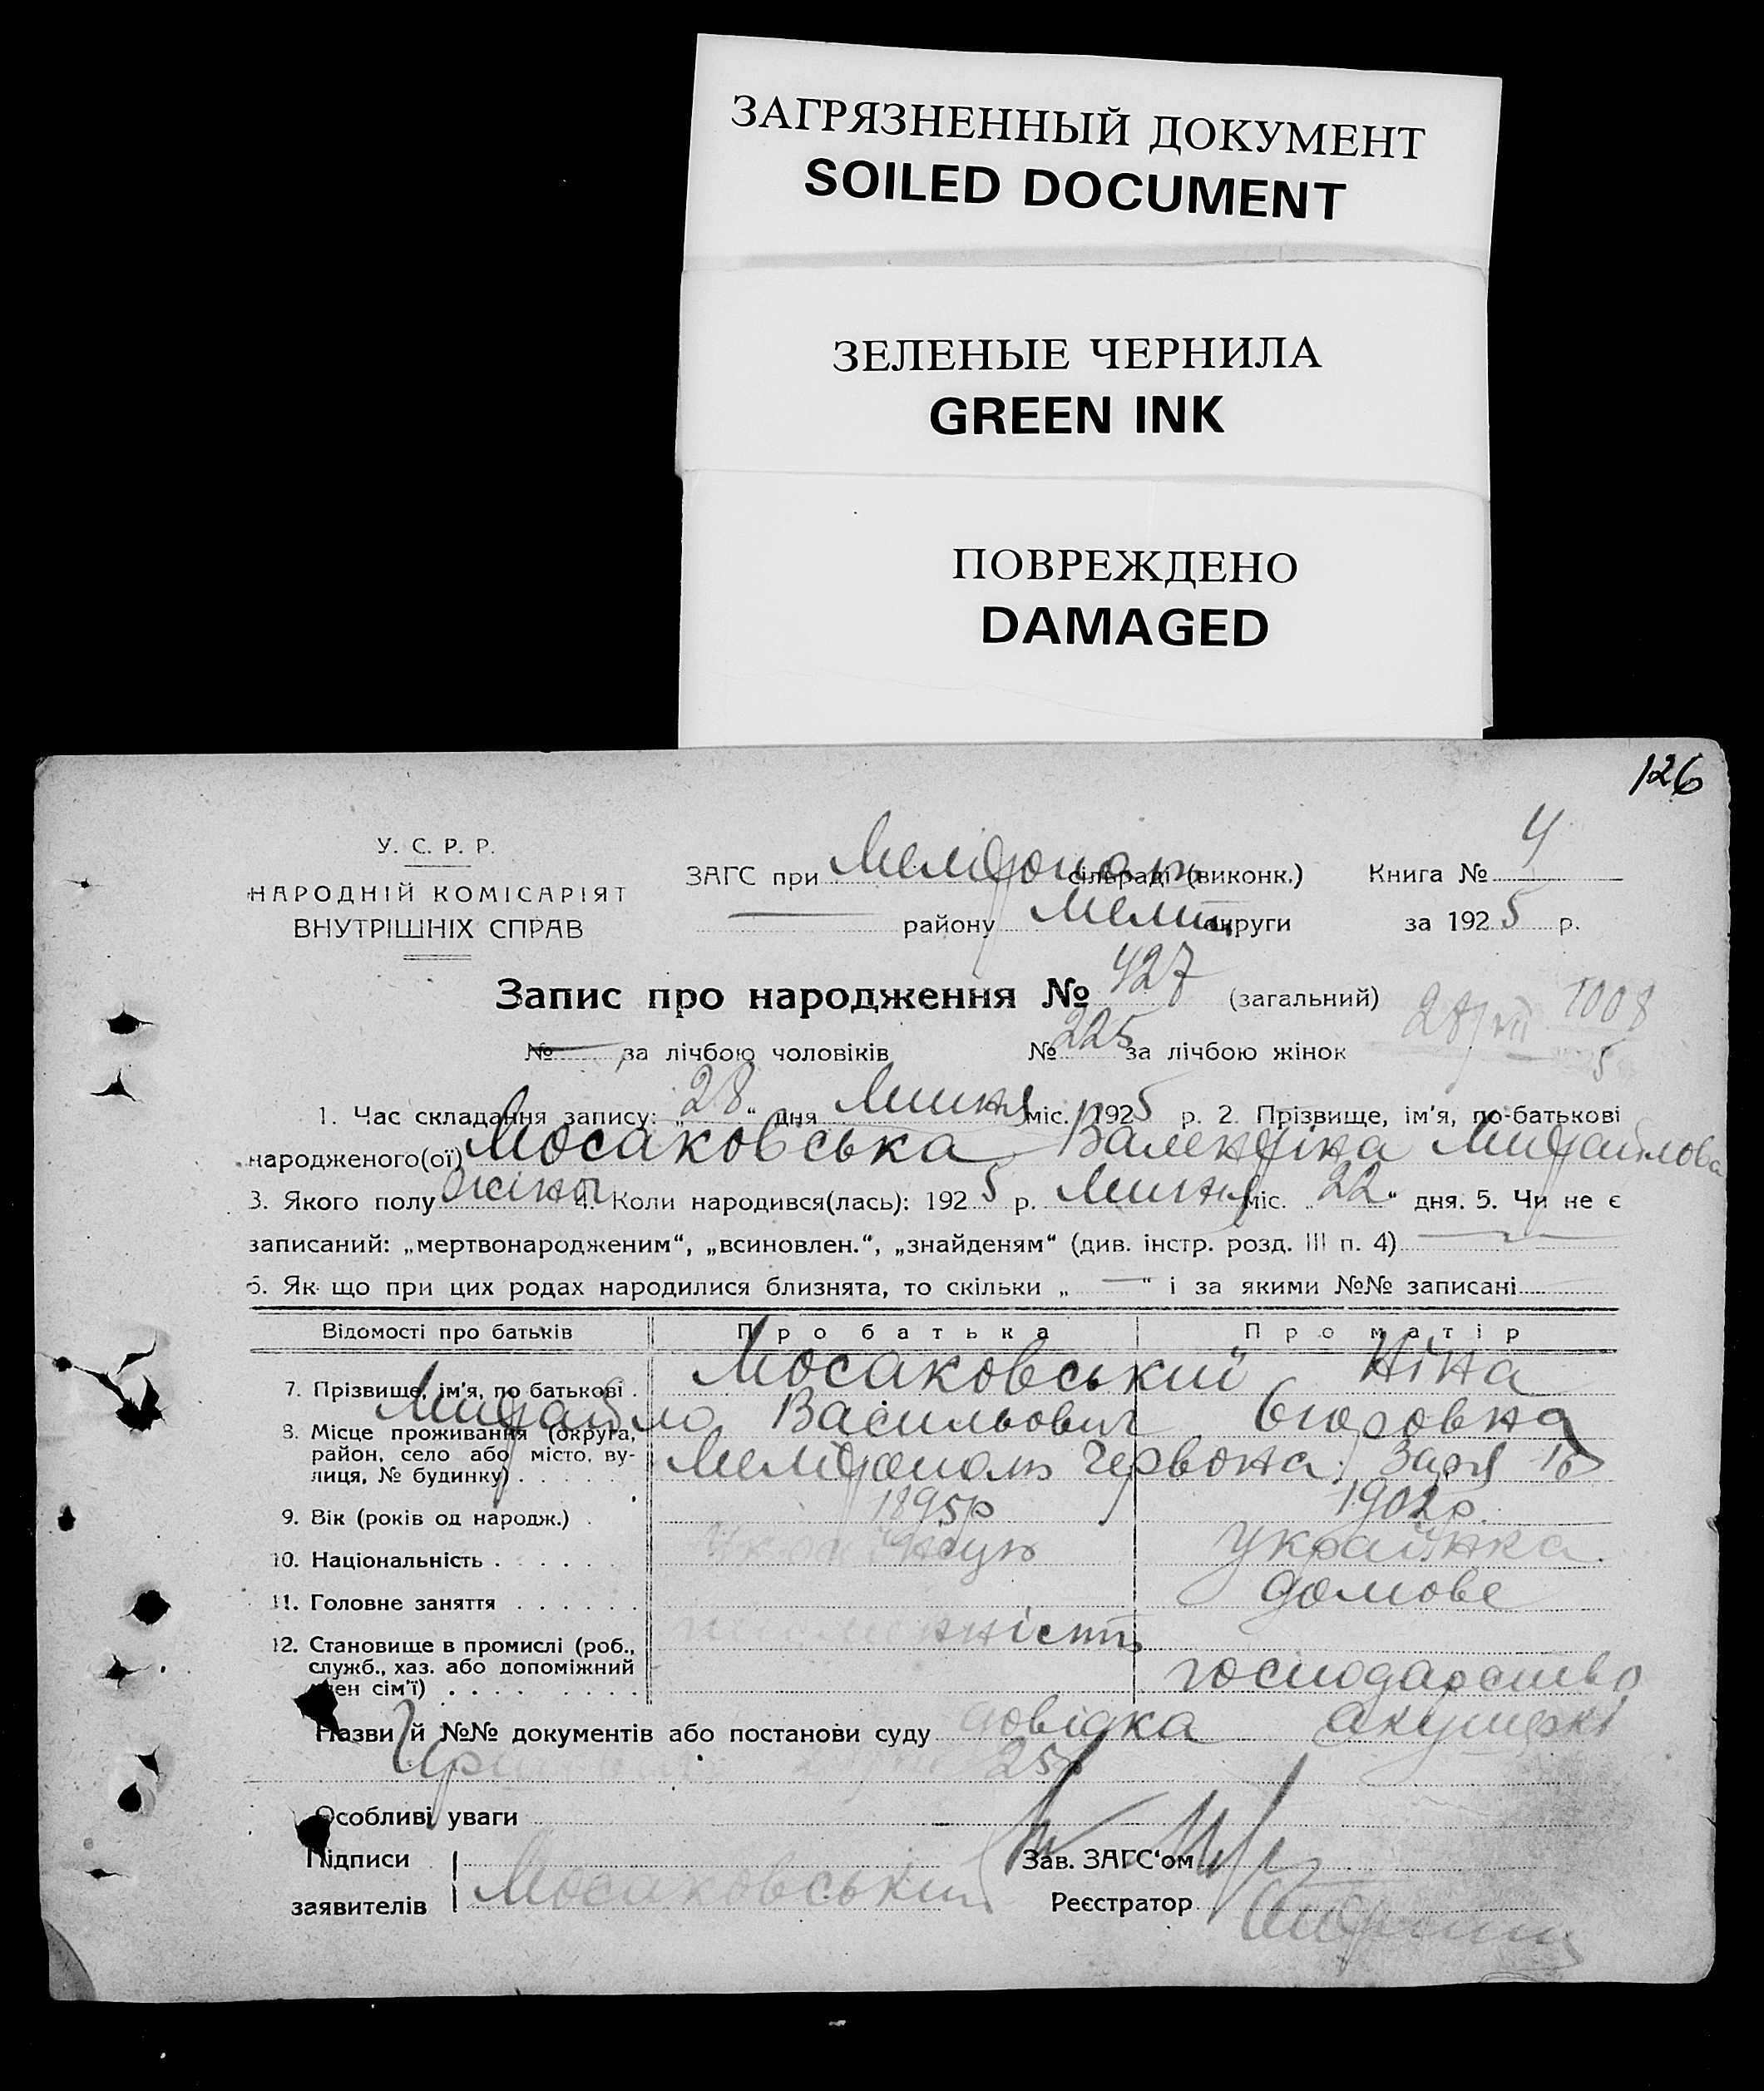 ЗАГРЯЗНЕННЫЙ ДОКУМЕНТ
SOILED DOCUMENT
ЗЕЛЕНЫЕ ЧЕРНИЛА
GREEN INK
ПОВРЕЖДЕНО
DAMAGED
126
У. С. Р. Р.
НАРОДНІЙ КОМІСАРІЯТ
ВНУТРІШНІХ СПРАВ
ЗАГС при Мелітополь сільраді (виконк.) Книга № 4
району Меліт. округи за 1925 р.
Запис про народження № 427 (загальний)
28/VII 1008
5
№ — за лічбою чоловіків № 225 за лічбою жінок
1. Час складання запису: „28“ дня Липня міс. 1925 р. 2. Прізвище, ім'я, по-батькові
народженого(ої) Мосаковська Валентіна Михайлова
3. Якого полу жіноч 4. Коли народився(лась): 1925 р. Липня міс. „22“ дня. 5. Чи не є
записаний: „мертвонародженим“, „всиновлен.“, „знайденям“ (див. інстр. розд. III п. 4) —
6. Як що при цих родах народилися близнята, то скільки „—“ і за якими №№ записані
Відомості про батьків Про батька Про матір
7. Прізвище, ім'я, по батькові . Мосаковський Ніна
Михайло Васильович Єгоровна
8. Місце проживання (округа,
район, село або місто, ву-
лиця, № будинку) . . . . . Мелітополь Червона Заря 16
9. Вік (років од народж.) . 1895р 1902р.
10. Національність . . . . . Українець українка.
11. Головне заняття . . . . . . домове
12. Становище в промислі (роб.,
служб., хаз. або допоміжний
член сім'ї) . . . . . . . . господарство
Назви й №№ документів або постанови суду довідка акушеркі
25р
Особливі уваги
Підписи
заявителів Мосаковський
Зав. ЗАГС‘ом
Реєстратор